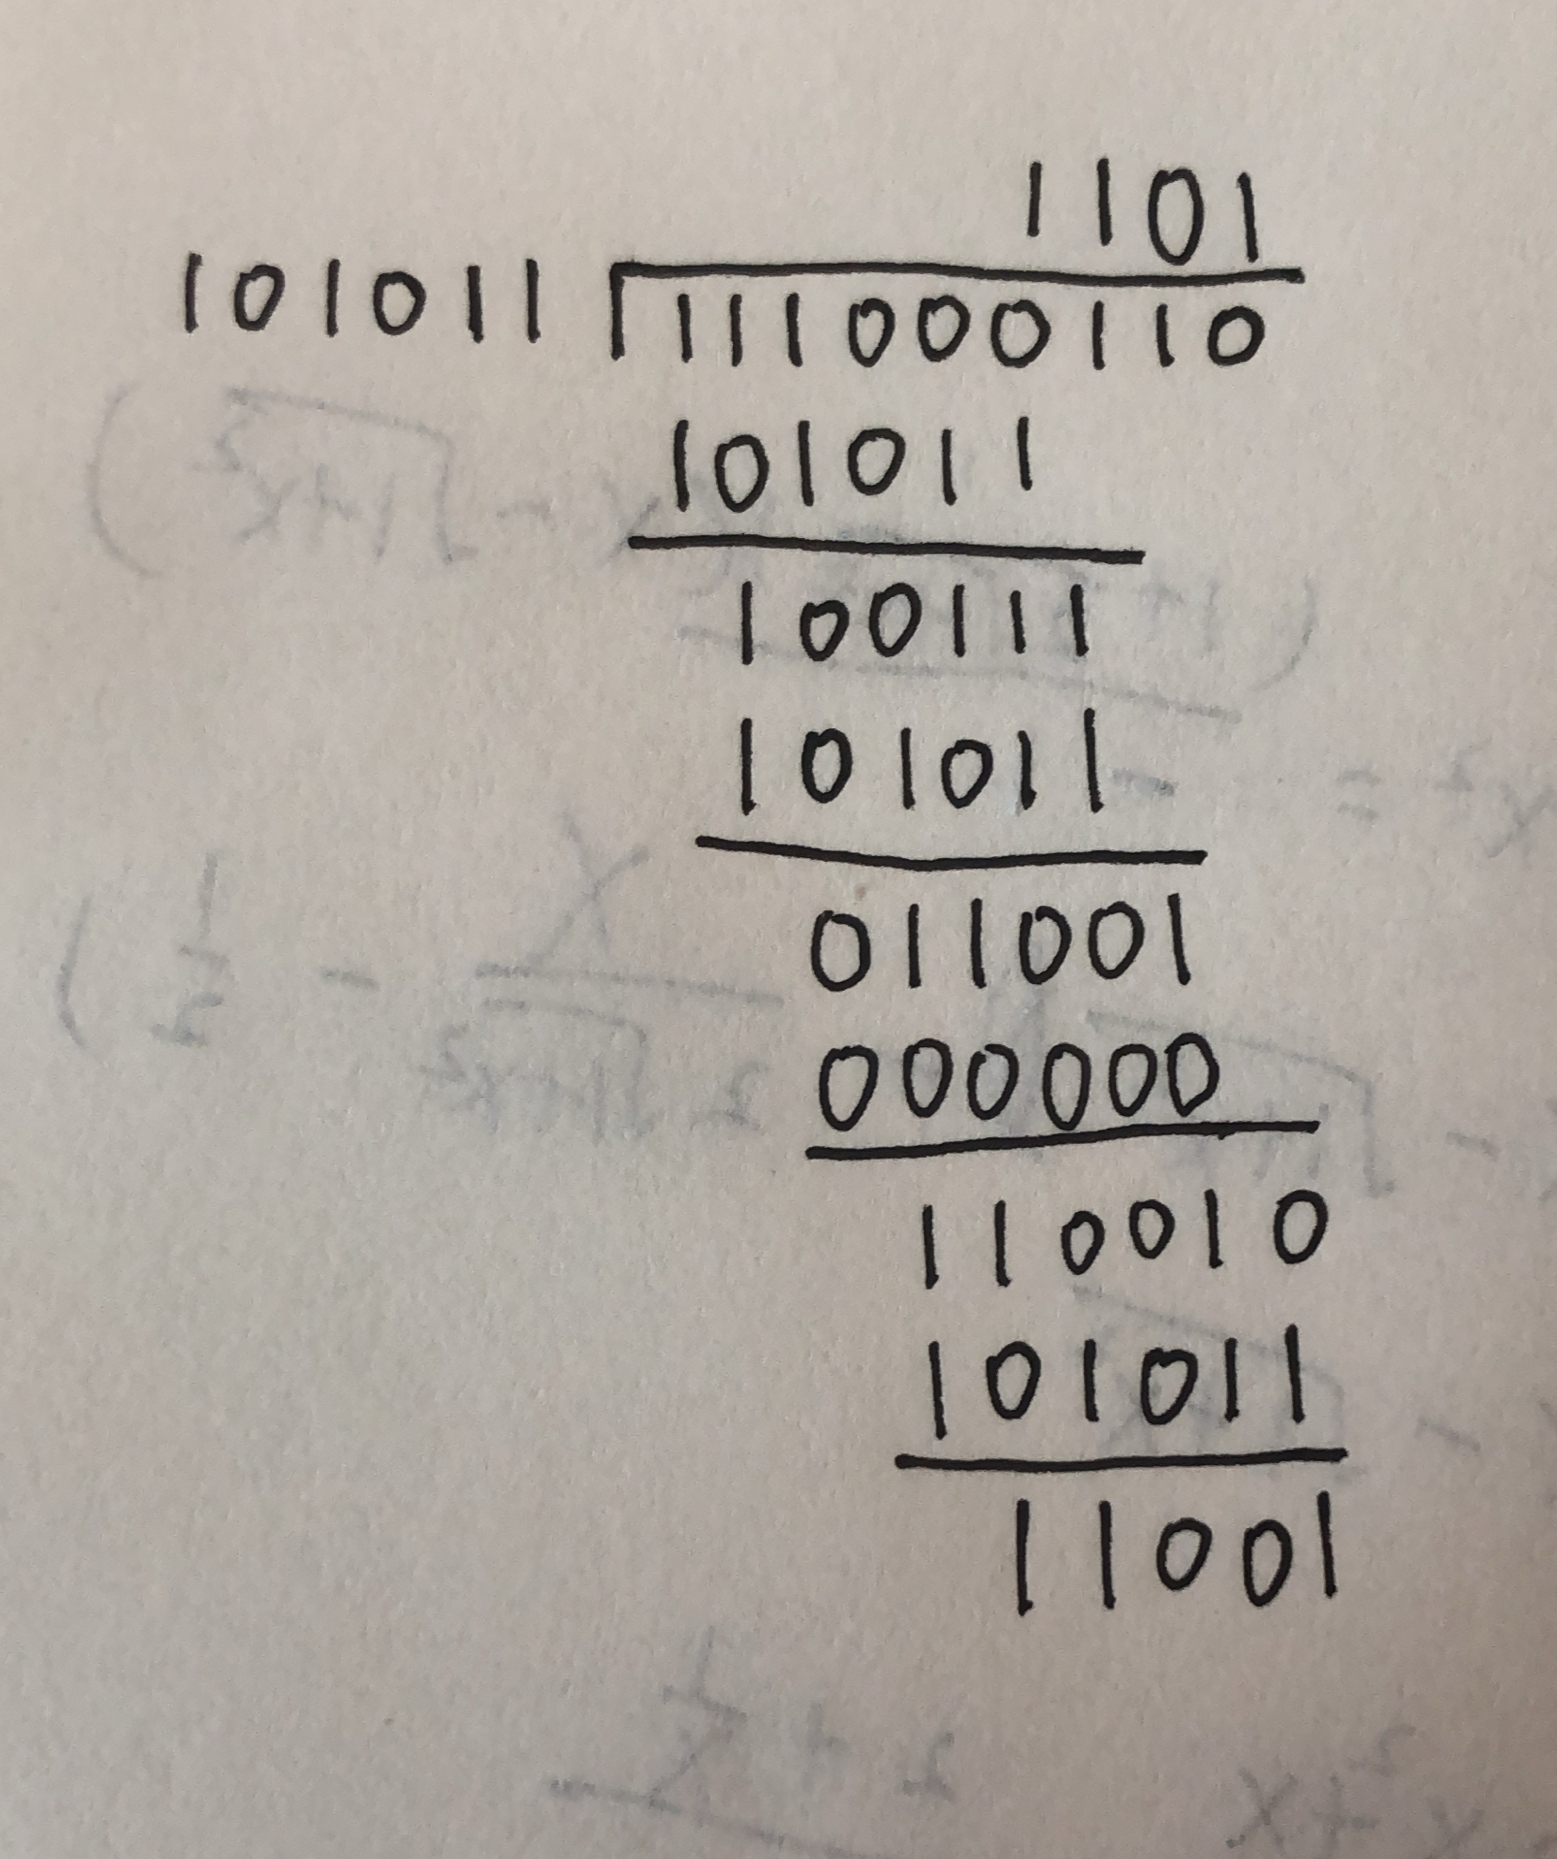 1101
101011 111000110
101011
100111
101011
011001
000000
110010
101011
11001